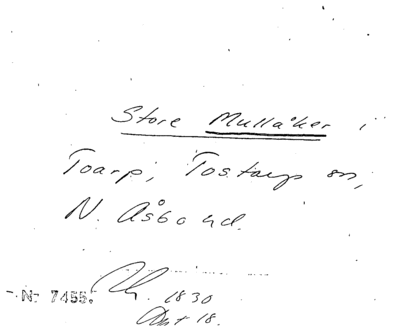 Store Mullåker i
Toarp, Tostarps sn,
N. Åsbo hd.
Nr 7455.
1830
18.